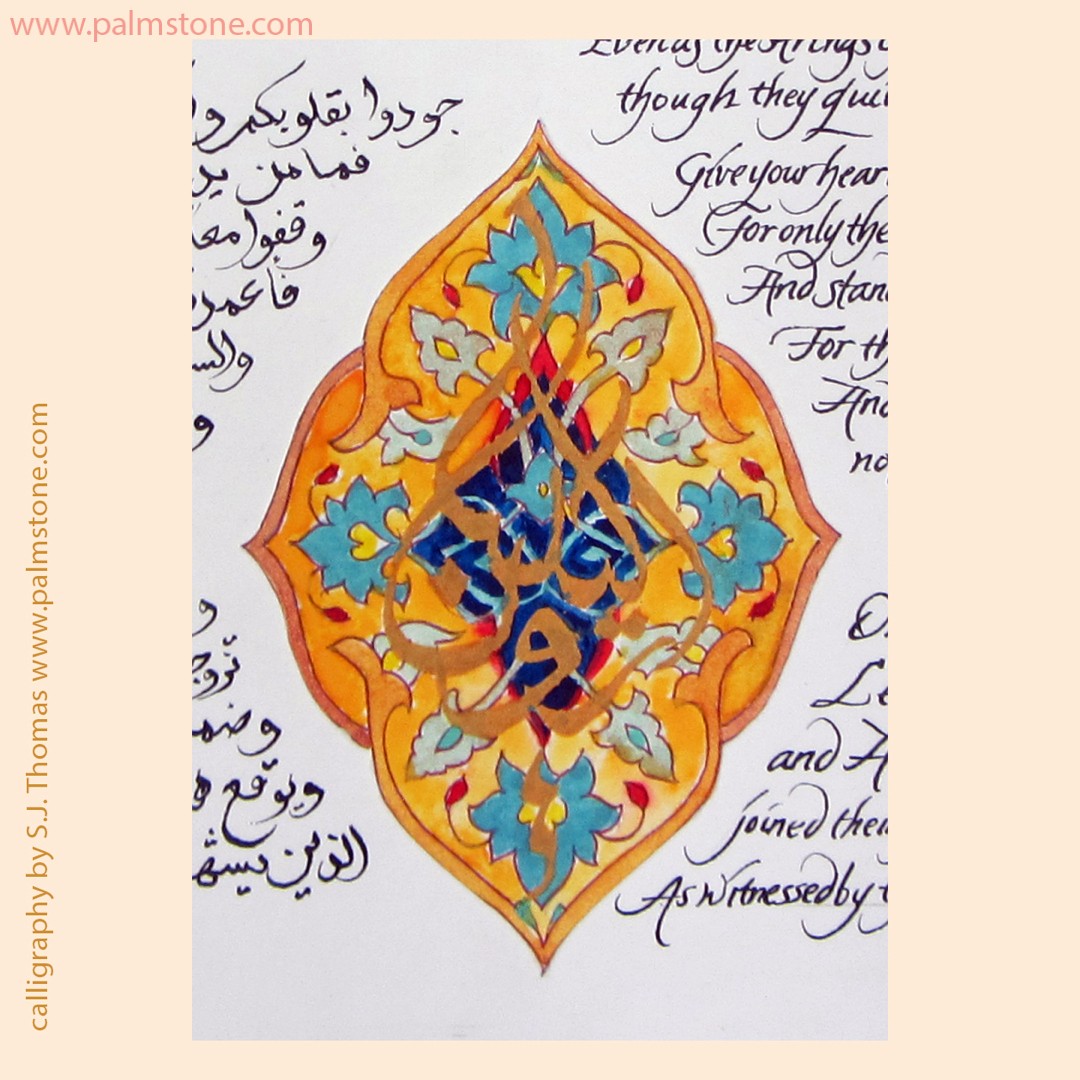 www.palmstone.com
calligraphy by S.J. Thomas www.palmstone.com
جودوا بقلوبكم
فما من
وقفوا معا
فأعمد
والس
و
و
تزوج
وضم
ويوقع
الذين يشه
Even as the strings
though they qui
Give your hear
For only the
And stan
For th
And
no
O
Le
and A
joined thei
As witnessed by t